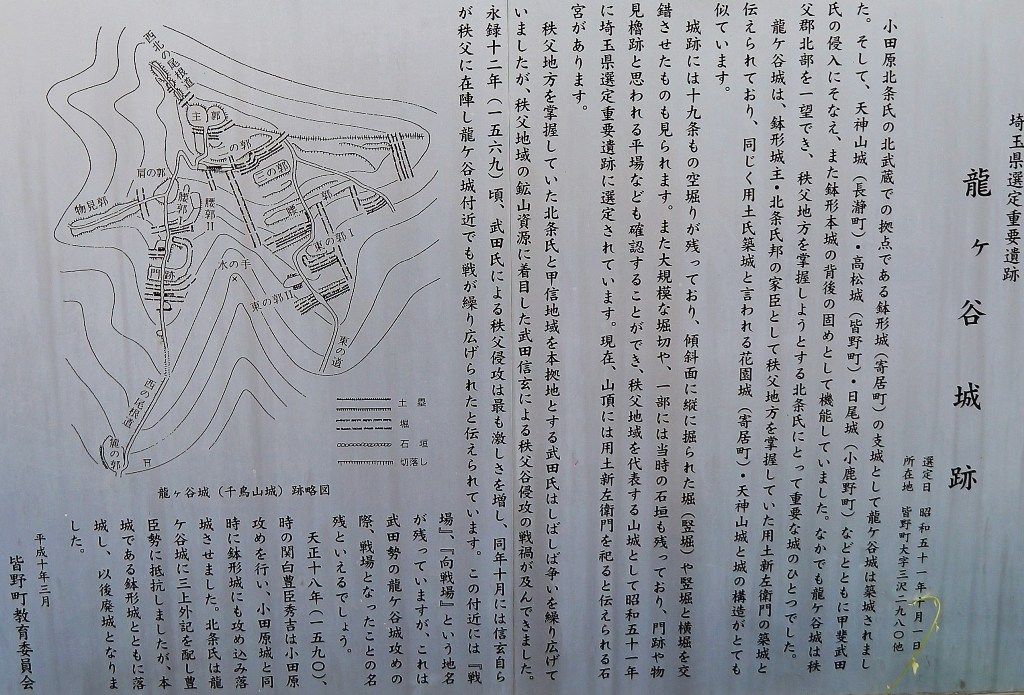 埼玉県選定重要遺跡
龍ヶ谷城跡
選定日　昭和五十一年十月一日
所在地　皆野町大字三沢二九八〇他
小田原北条氏の北武蔵での拠点である鉢形城（寄居町）の支城として龍ケ谷城は築城されまし
た。そして、天神山城（長瀞町）・高松城（皆野町）・日尾城（小鹿野町）などとともに甲斐武田
氏の侵入にそなえ、また鉢形本城の背後の固めとして機能していました。なかでも龍ケ谷城は秩
父郡北部を一望でき、秩父地方を掌握しようとする北条氏にとって重要な城のひとつでした。
龍ケ谷城は、鉢形城主・北条氏邦の家臣として秩父地方を掌握していた用土新左衛門の築城と
伝えられており、同じく用土氏築城と言われる花園城（寄居町）・天神山城と城の構造がとても
似ています。
城跡には十九条もの空堀りが残っており、傾斜面に縦に掘られた堀（竪堀）や竪堀と横堀を交
錯させたものも見られます。また大規模な堀切や、一部には当時の石垣も残っており、門跡や物
見櫓跡と思われる平場なども確認することができ、秩父地域を代表する山城として昭和五十一年
に埼玉県選定重要遺跡に選定されています。現在、山頂には用土新左衛門を祀ると伝えられる石
宮があります。
秩父地方を掌握していた北条氏と甲信地域を本拠地とする武田氏はしばしば争いを繰り広げて
いましたが、秩父地域の鉱山資源に着目した武田信玄による秩父谷侵攻の戦禍が及んできました。
永録十二年（一五六九）頃、武田氏による秩父侵攻は最も激しさを増し、同年十月には信玄自ら
が秩父に在陣し龍ケ谷城付近でも戦が繰り広げられたと伝えられています。この付近には『戦
場』、『向戦場』という地名
が残っていますが、これは
武田勢の龍ケ谷城攻めの
際、戦場となったことの名
残といえるでしょう。
天正十八年（一五九〇）、
時の関白豊臣秀吉は小田原
攻めを行い、小田原城と同
時に鉢形城にも攻め込み落
城させました。北条氏は龍
ケ谷城に三上外記を配し豊
臣勢に抵抗しましたが、本
城である鉢形城とともに落
城し、以後廃城となりま
した。
平成十年三月
皆野町教育委員会
西北の尾根道
主郭
二の郭
三の郭
肩の郭
物見郭
腰郭
腰郭II
腰
郭
門跡
水の手
東の郭I
東の郭II
東の道
西の尾根道
龍の郭
土塁
堀
石垣
切落し
龍ヶ谷城（千馬山城）跡略図